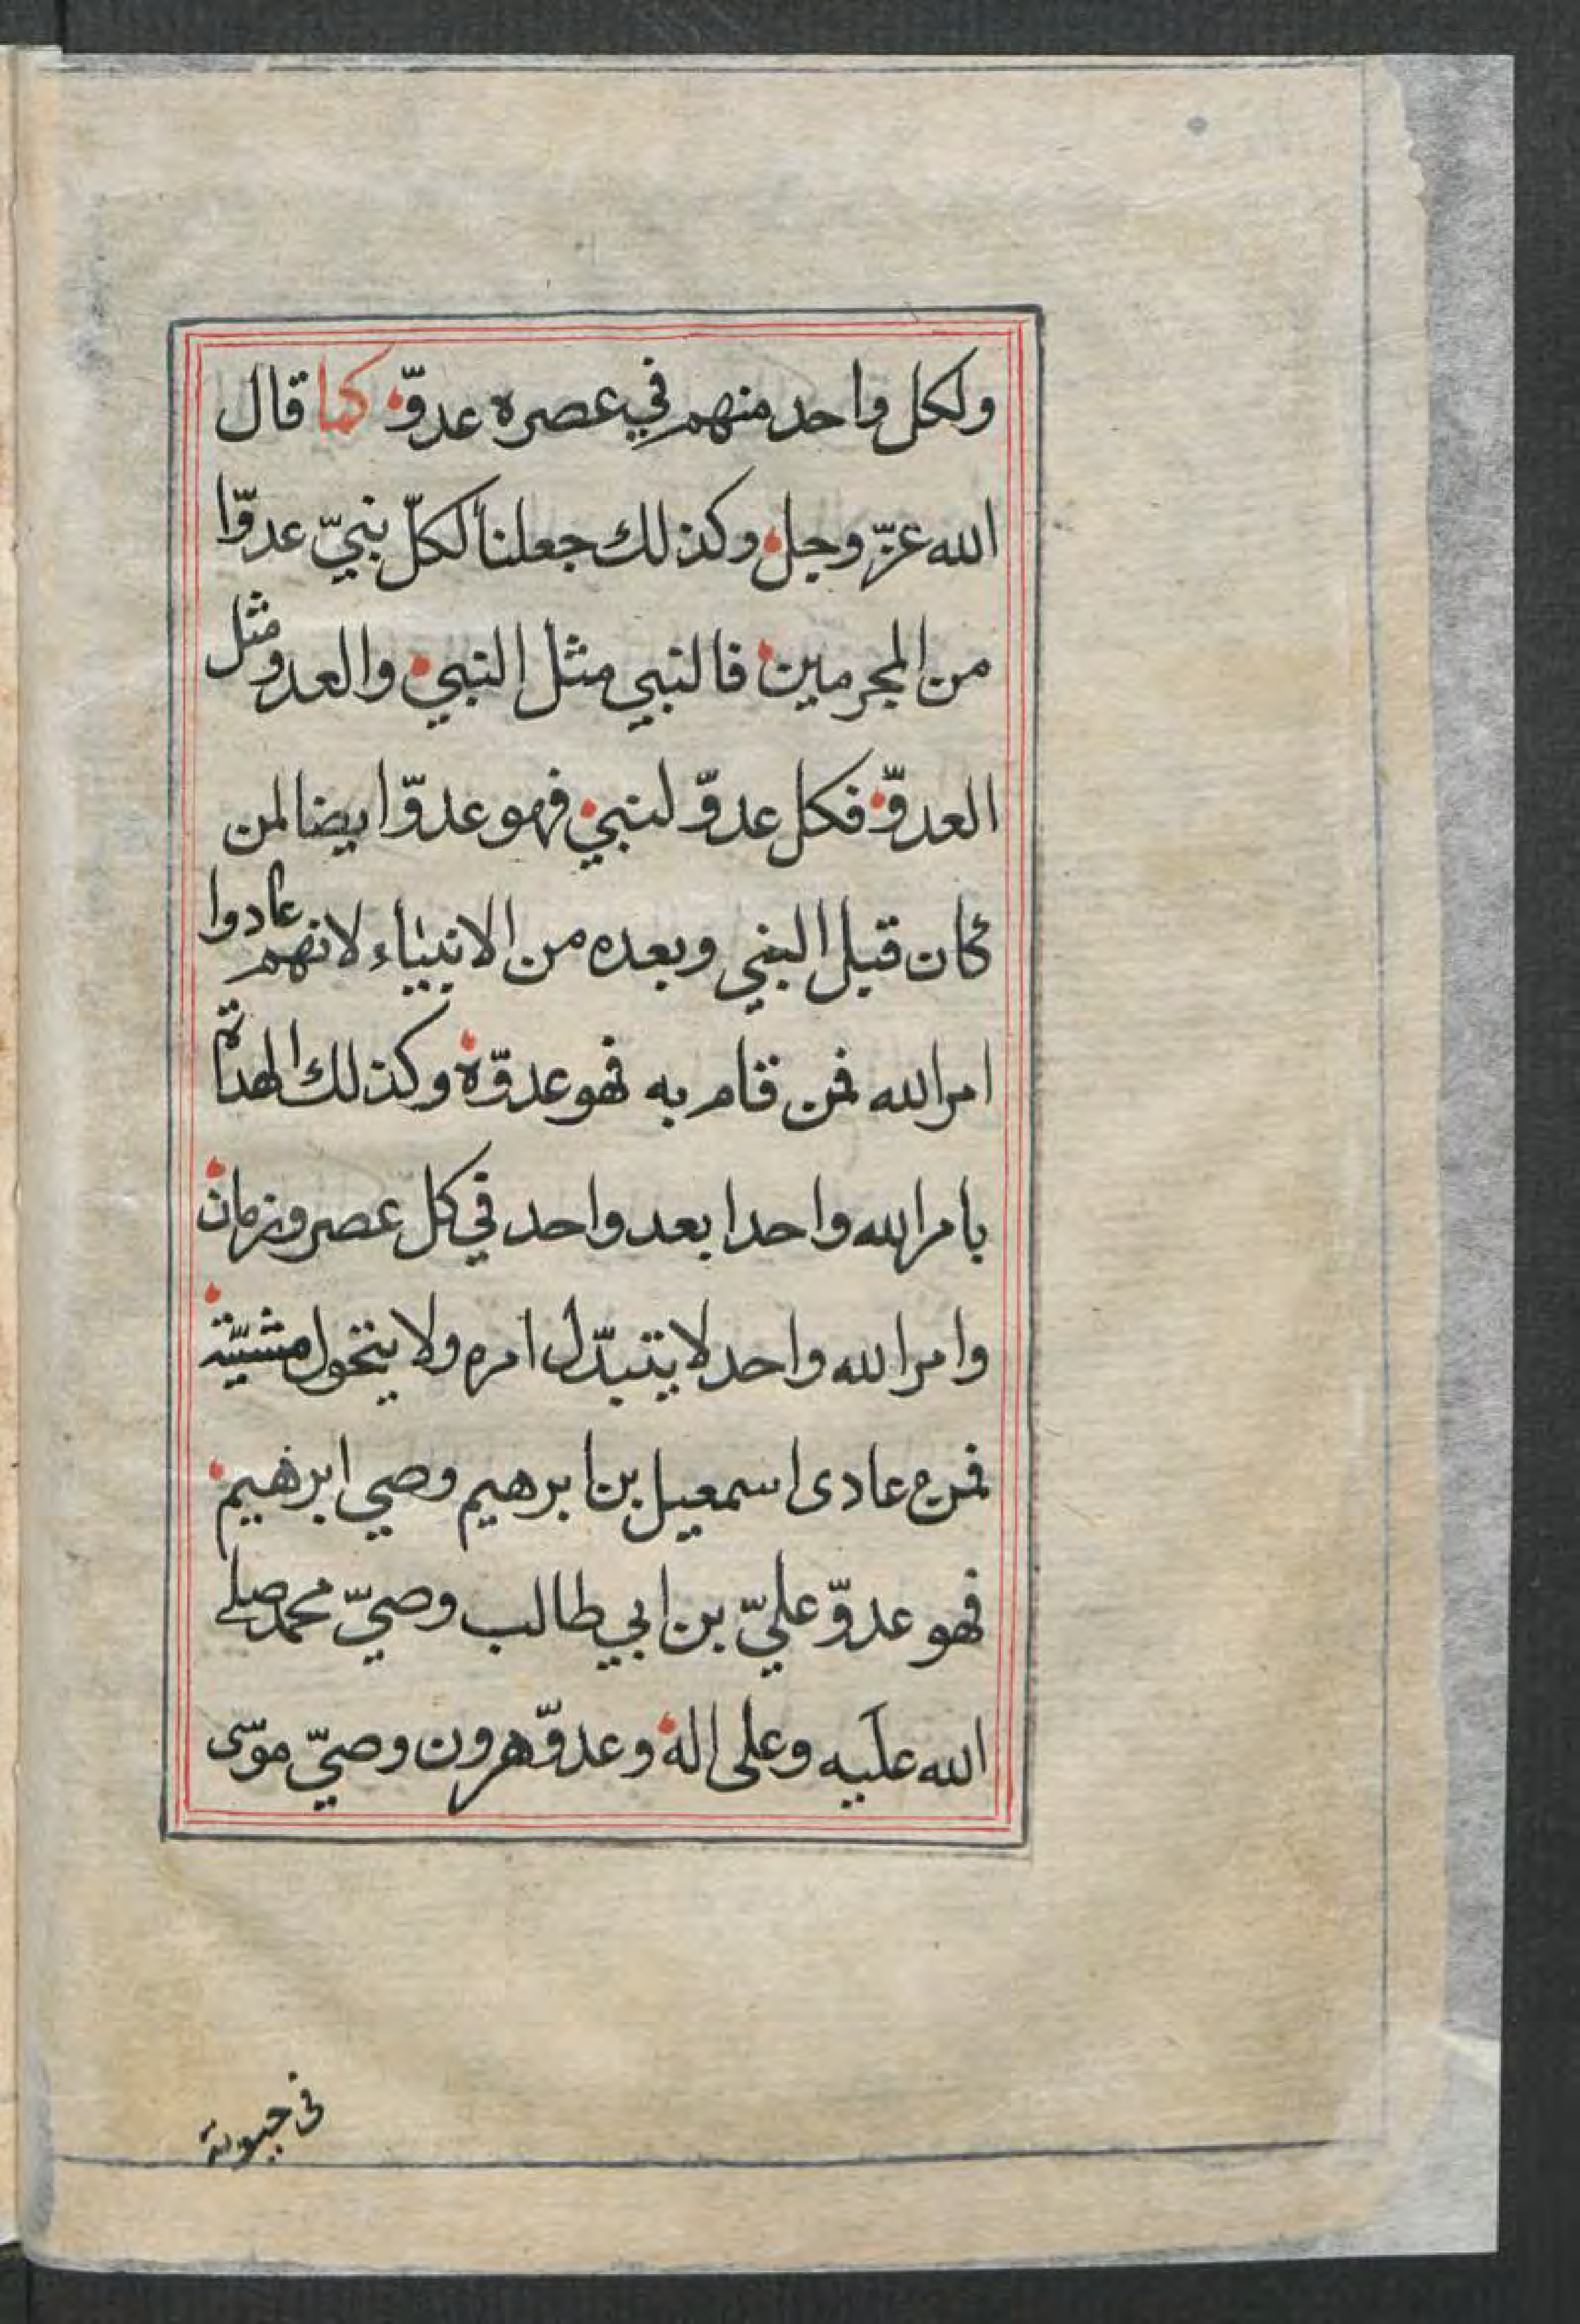 ولكل واحد منهم في عصره عدوّ كما قال
الله عزّ وجل وكذلك جعلنا لكلّ نبيّ عدوّا
من المجرمين فالنبي مثل النبي والعدو مثل
العدوّ فكل عدوّ لنبي فهو عدوّ ايضا لمن
كان قبل النبي وبعده من الانبياء لانهم عادوا
امر الله فمن قام به فهو عدوّه وكذلك الهداة
بامر الله واحدا بعد واحد في كل عصر وزمان
وامر الله واحد لا يتبدّل امره ولا يتحول مشيّته
فمن عادى اسمعيل بن ابرهيم وصي ابرهيم
فهو عدوّ عليّ بن ابي طالب وصيّ محمد صلى
الله عليه وعلى اله وعدوّ هرون وصيّ موسى
في حيوته